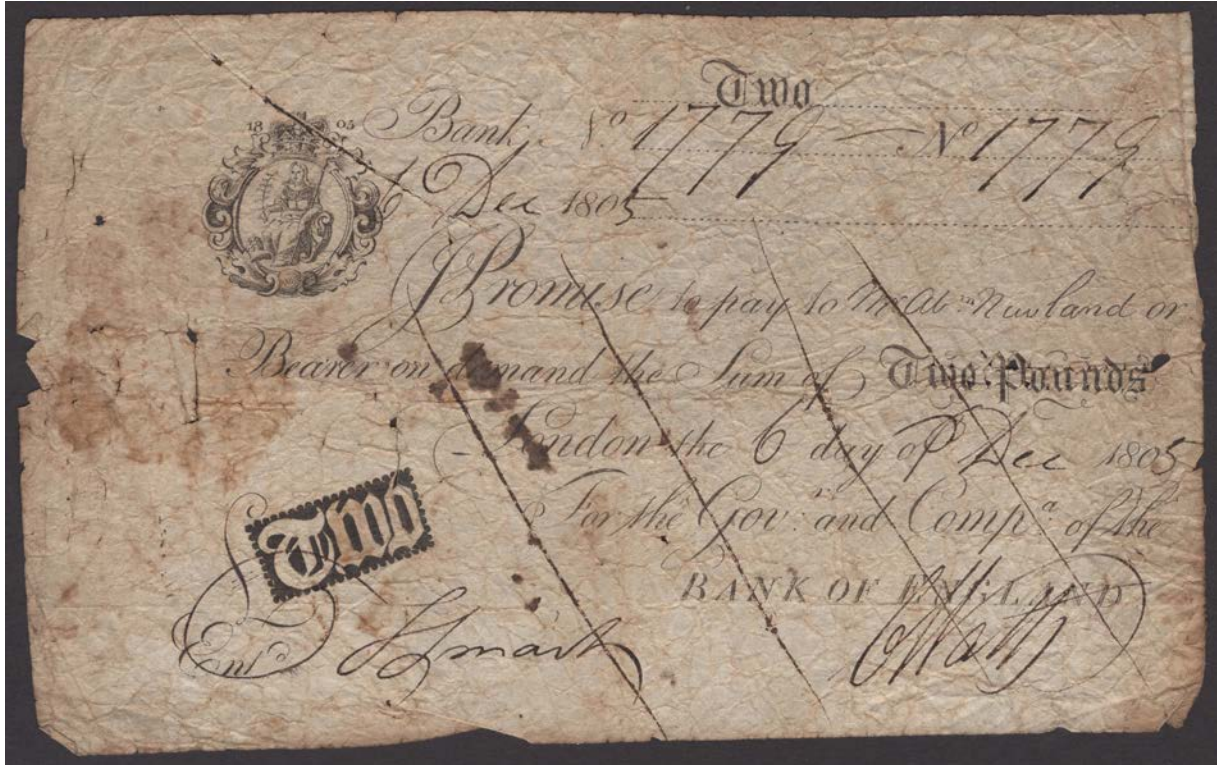 Two
18 05
Bank, No. 1779 — No 1779
6 Dec 1805
I Promise to pay to Mr Abm Newland or
Bearer on demand the Sum of Two Pounds
London the 6 day of Dec 1805
For the Govr: and Compa. of the
BANK OF ENGLAND
Two
Entd